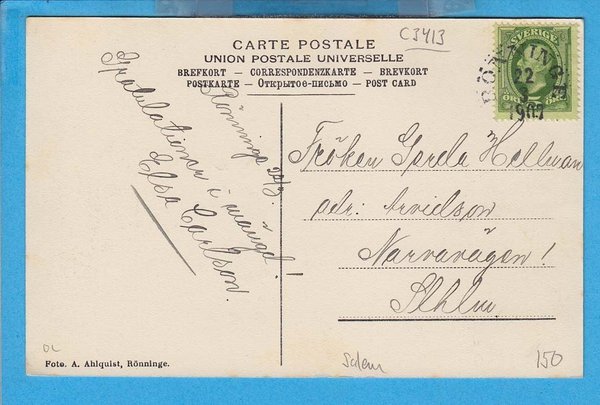 C3413
CARTE POSTALE
UNION POSTALE UNIVERSELLE
BREFKORT – CORRESPONDENZKARTE – BREVKORT
POSTKARTE – Открытое-письмо – POST CARD
SVERIGE
RÖNNINGE
22
1907
Rönninge 22/3.
Gratulationer i mängd!
Elsa Carlson.
Fröken Gerda Hellman
adr. Arvidson
Narvavägen 1
Sthlm
OL
Foto. A. Ahlquist, Rönninge.
Salem
150